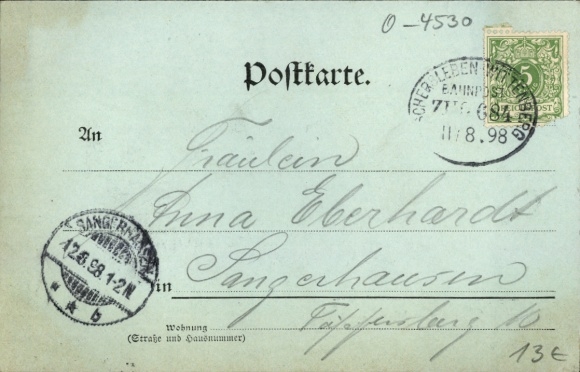 O-4530
Postkarte.
5
REICHSPOST
ASCHERSLEBEN WITTENBERG
BAHNPOST
ZUG 684
11/8.98
An
Fräulein
Anna Eberhardt
SANGERHAUSEN
12.8.98.1-2N
* * b
in Sangerhausen
Töpfersberg 10
Wohnung
(Straße und Hausnummer)
13€